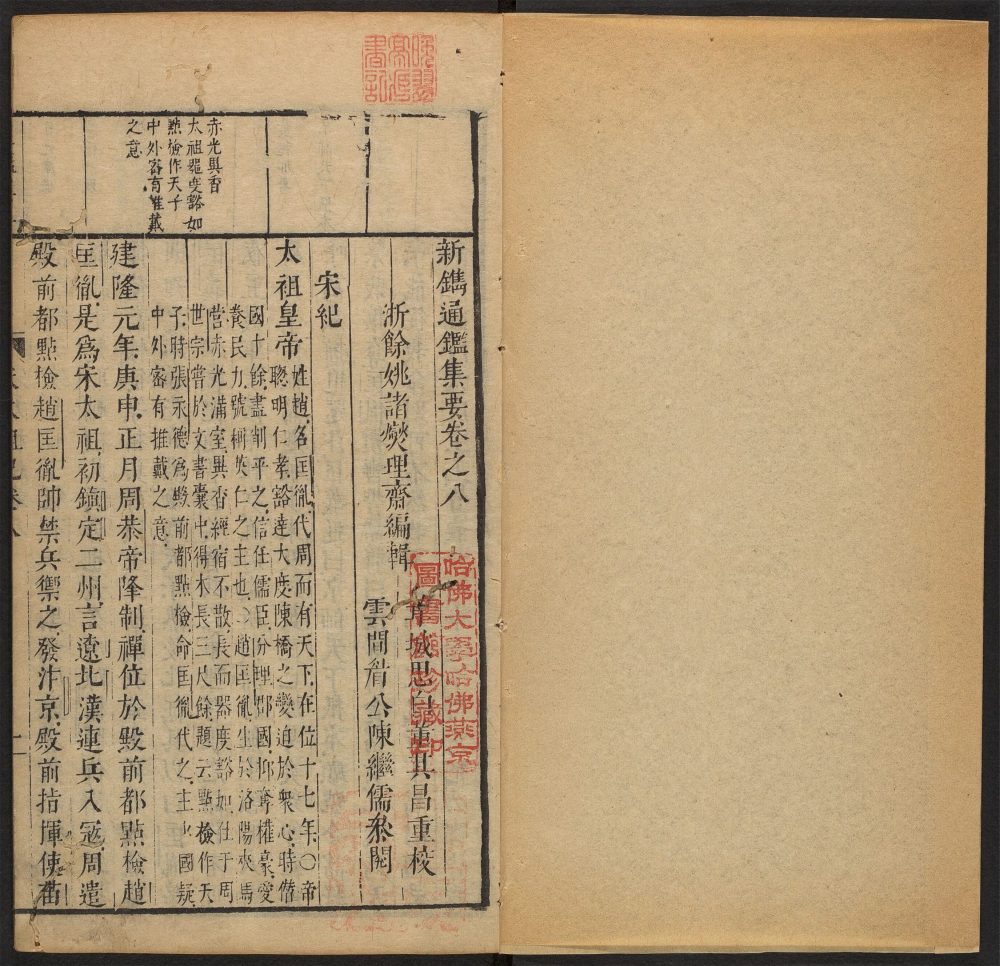 新鐫通鑑集要卷之八
浙餘姚諸燮理齋編輯
城思白董其昌重校
雲間眉公陳繼儒叅閱
宋紀
太祖皇帝
姓趙名匡胤代周而有天下在位十七年〇帝
聰明仁孝豁達大度陳橋之變迫於衆心時僣
國十餘盡削平之信任儒臣分理郡國抑奪權豪愛
養民力號稱英仁之主也〇趙匡胤生於洛陽夾馬
營赤光滿室異香經宿不散長而器度豁如仕于周
世宗嘗於文書囊中得木長三尺餘題云點檢作天
子時張永德爲殿前都點檢命匡胤代之主少國疑
中外密有推戴之意
建隆元年庚申正月周恭帝降制禪位於殿前都點檢趙
匡胤是爲宋太祖初鎮定二州言遼北漢連兵入寇周遣
殿前都點檢趙匡胤帥禁兵禦之發汴京殿前指揮使苗
赤光異香
太祖器度豁如
點檢作天子
中外密有推戴
之意
哈佛大學哈佛燕京
圖書館珍藏印